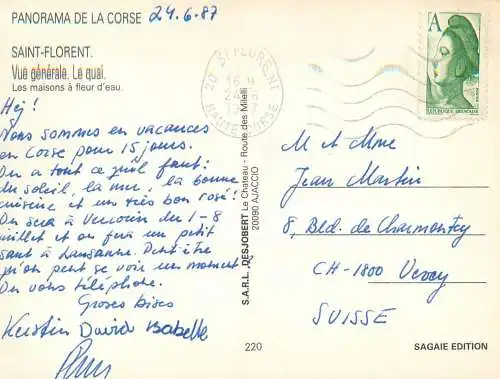 PANORAMA DE LA CORSE 24.6.87
SAINT-FLORENT.
Vue générale. Le quai.
Les maisons à fleur d'eau.
Hej!
Nous sommes en vacances
en Corse pour 15 jours.
On a tout ce qu'il faut:
du soleil, la mer, la bonne
cuisine et un très bon rosé!
On sera à Vercorin du 1-8
juillet et on fera un petit
saut à Lausanne. Peut-être
qu'on peut se voir un moment?
On vous téléphone.
Grosses bises
Kerstin David Isabelle
20 ST FLORENT
16 H
HAUTE CORSE
A
REPUBLIQUE FRANCAISE
S.A.R.L. "DESJOBERT Le Chateau - Route des Milelli
20090 AJACCIO
M et Mme
Jean Martin
8, Bld. de Charmontey
CH-1800 Vevey
SUISSE
220
SAGAIE EDITION